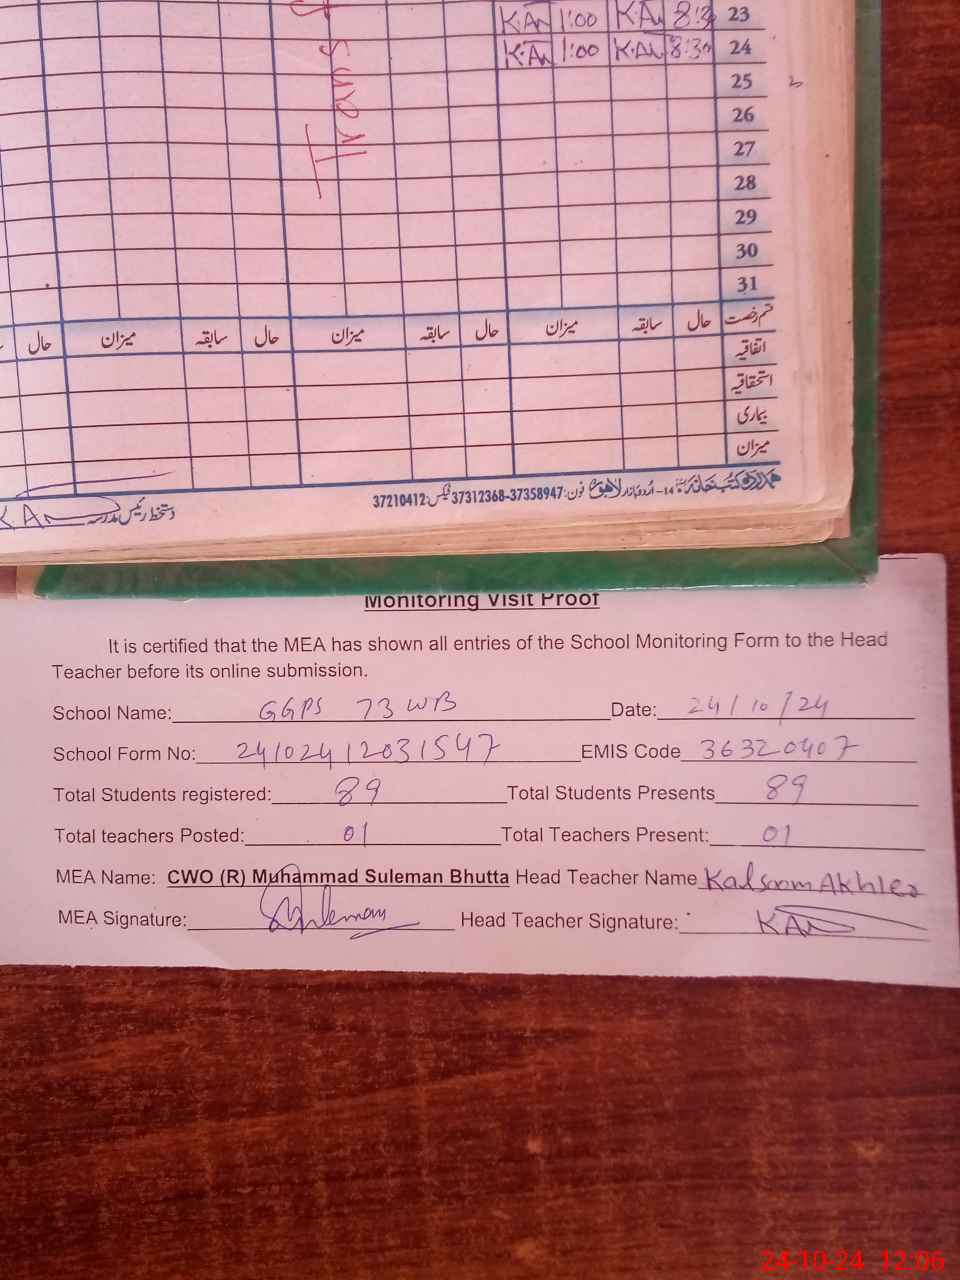 K.An 1:00 K.An 8:3 23
K.An 1:00 K.An 8:30 24
25
26
27
28
29
30
31
قسم رخصت حال سابقہ میزان حال سابقہ میزان حال سابقہ میزان حال
اتفاقیہ
استحقاقیہ
بیماری
میزان
ہمدرد کتب خانہ 14- اردو بازار لاہور فون: 37358947-37312368 فیکس: 37210412
دستخط رئیس مدرسہ KAn
Monitoring Visit Proof
It is certified that the MEA has shown all entries of the School Monitoring Form to the Head
Teacher before its online submission.
School Name: GGPS 73 WB Date: 24/10/24
School Form No: 24102412031547 EMIS Code 36320407
Total Students registered: 89 Total Students Presents 89
Total teachers Posted: 01 Total Teachers Present: 01
MEA Name: CWO (R) Muhammad Suleman Bhutta Head Teacher Name Kalsoom Akhter
MEA Signature: Suleman Head Teacher Signature: KAn
24-10-24 12:06